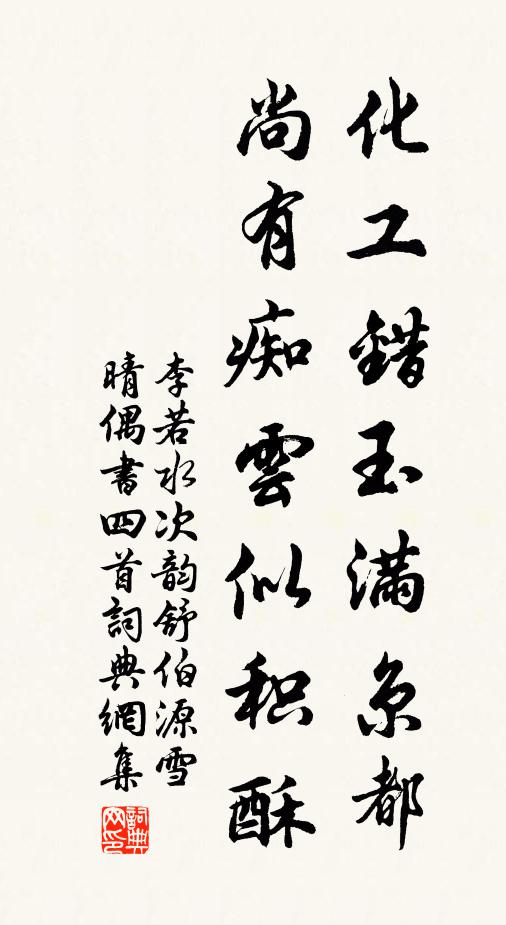 化工錯玉满京都
尚有痴雲似积酥
李若水次韵舒伯源雪
晴偶書四首詞典網集
詞典网印